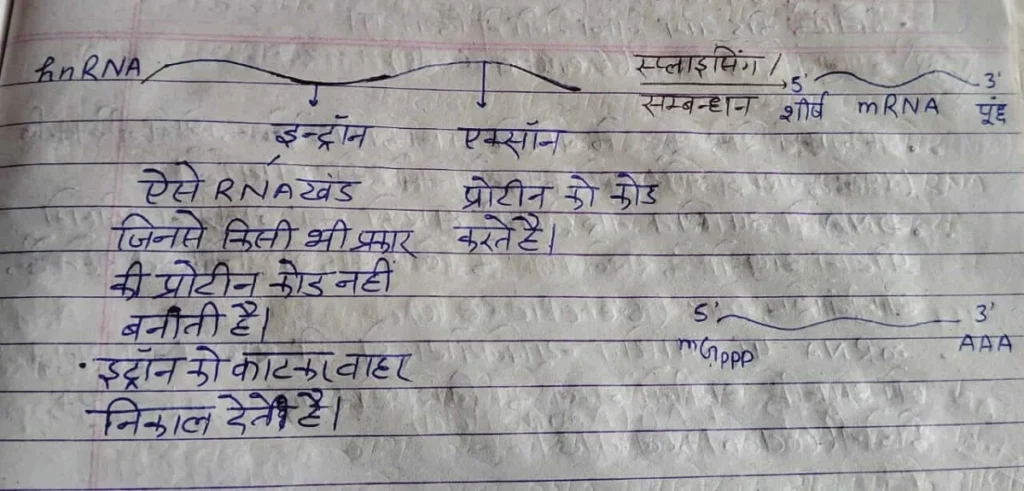 hnRNA स्प्लाइसिंग/
सम्बन्धन 5' शीर्ष mRNA 3' पूंछ
इन्ट्रॉन एक्सॉन
ऐसे RNA खंड प्रोटीन को कोड
जिनसे किसी भी प्रकार करते है।
की प्रोटीन कोड नहीं
बनाती है।
5' 3'
mGppp AAA
• इट्रॉन को काटकर वाहर
निकाल देते है।